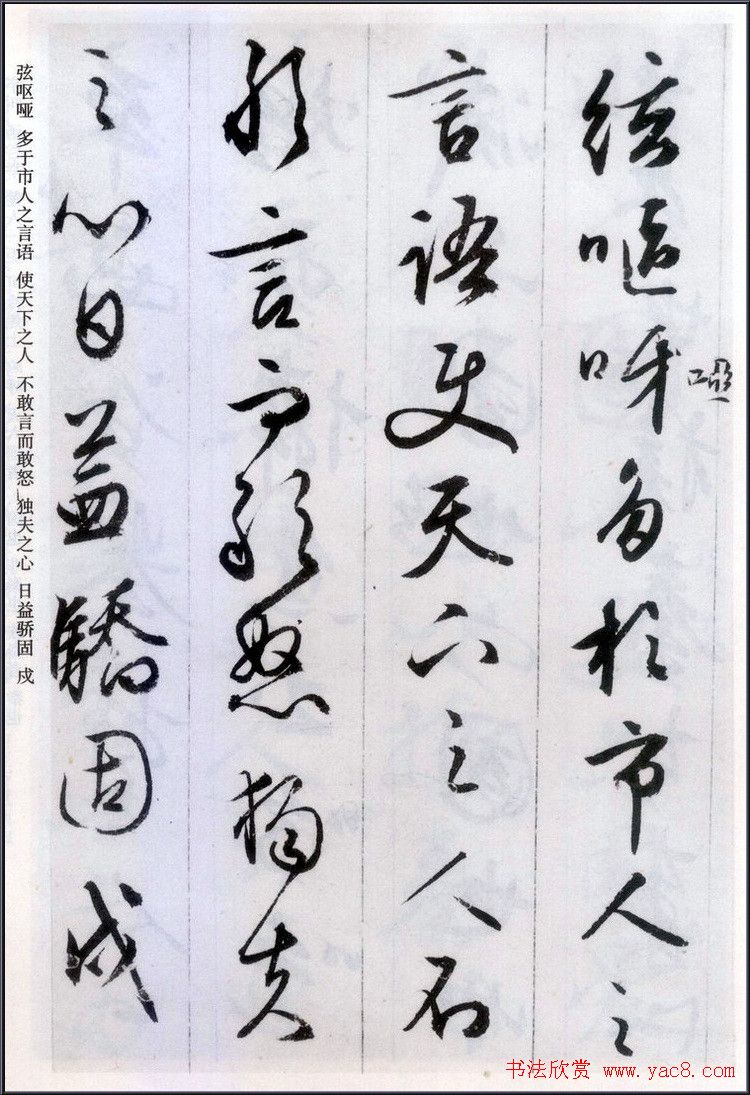 絃嘔呀多於市人之
啞
言語使天下之人不
敢言而敢怒獨夫
之心日益驕固戍
弦呕哑 多于市人之言语 使天下之人 不敢言而敢怒 独夫之心 日益骄固 戍
书法欣赏 www.yac8.com